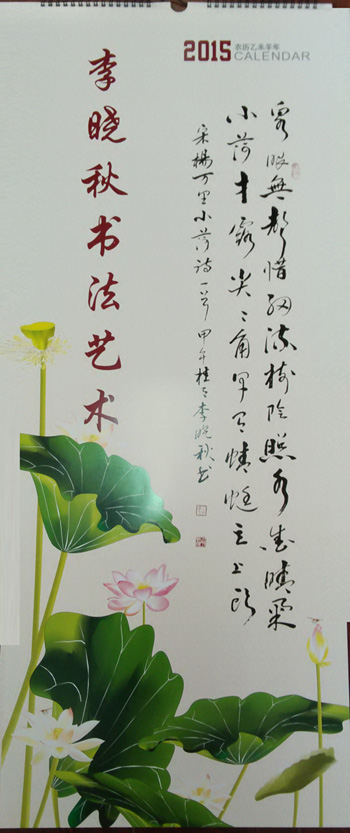 2015 农历乙未羊年
CALENDAR
李晓秋书法艺术
泉眼無声惜细流树阴照水爱晴柔
小荷才露尖尖角早有蜻蜓立上头
宋楊万里小荷诗一首 甲午桂月李晓秋书